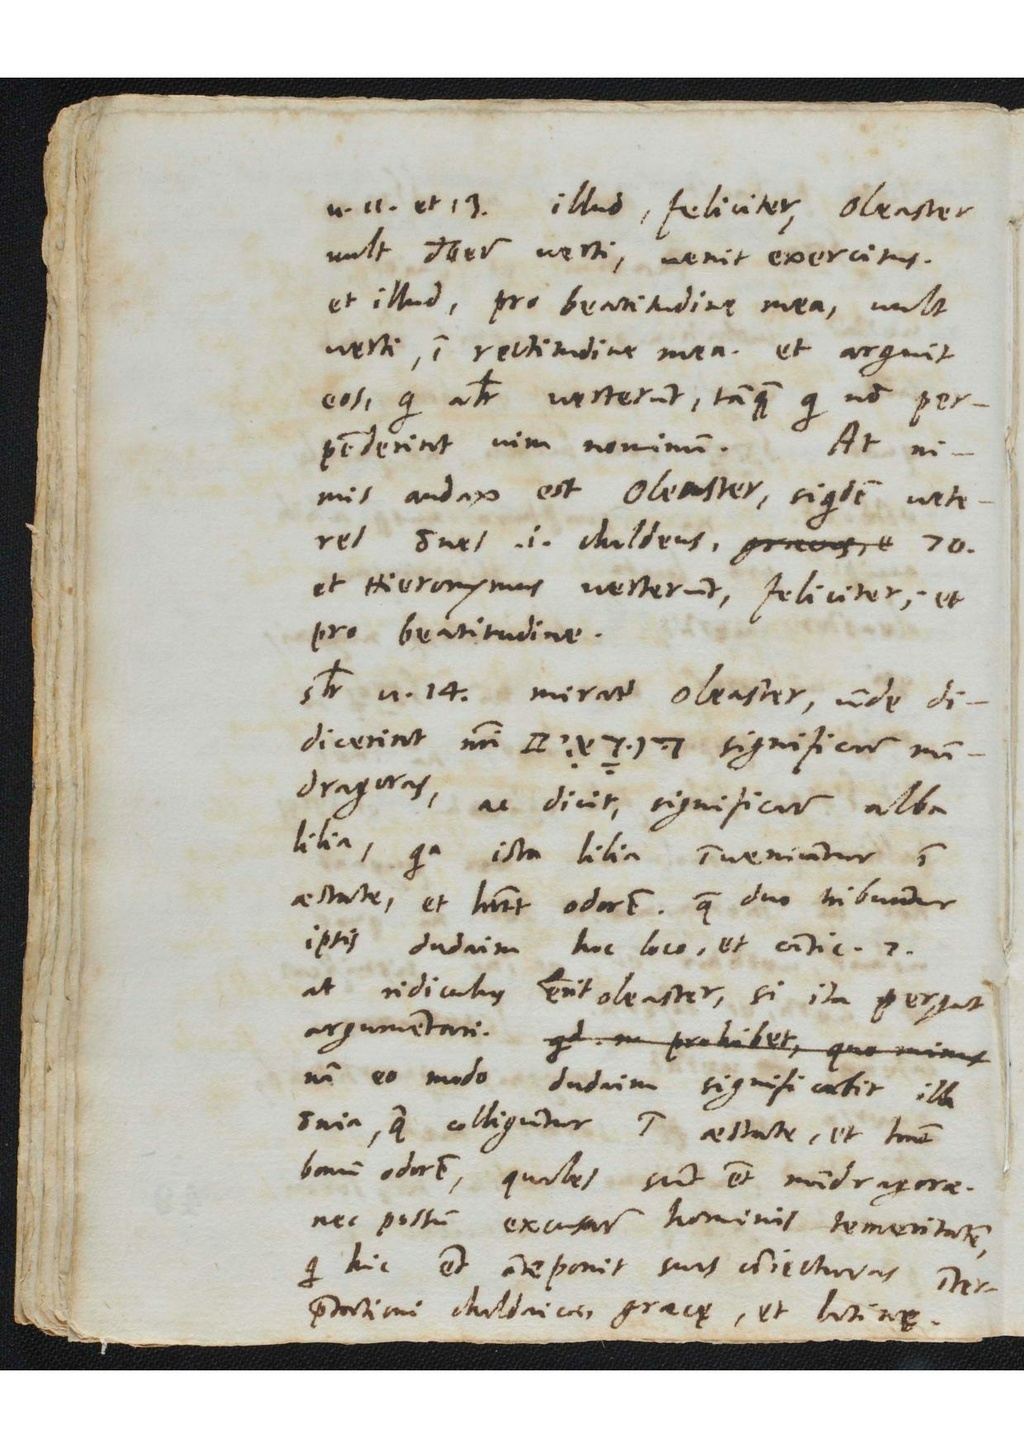 u. 11. et 13. illud, feliciter, Oleaster
vult dēr verti, uenit exercitus.
et illud, pro beatitudine mea, vult
verti, ī rectitudine mea. et arguit
eos, qi alr verterūt, tāq̄ qi nō per-
pēderint uim nominū. At ni-
mis audax est Oleaster, siqdē vete-
res ōnes .i. chaldeus, graecus, e 70.
et Hieronymus verterūt, feliciter, et
pro beatitudine.
sr u. 14. mirat Oleaster, ūde di-
dicerint nri דודאים significare mā-
dragoras, ac dicit, significare alba
lilia, qa ista lilia īveniūtur ī
æstate, et hnt odorē. q̄ duo tribuūtur
ipsis dudaim hoc loco, et cātic. 7.
at ridiculus erit oleaster, si ita pergat
argumētari. qd. n. prohibet, quo minus
nā eo modo dudaim significabit illa
ōnia, q̄ colliguntur ī æstate, et hnt
bonū odorē, quales sūt ēt mādragoræ.
nec possū excusare hominis temeritatē,
qi hic ēt āteponit suas cōiecturas īter-
prtationi chaldaicæ græcę, et latinę.